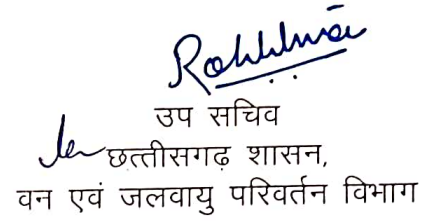 उप सचिव
छत्तीसगढ़ शासन,
वन एवं जलवायु परिवर्तन विभाग